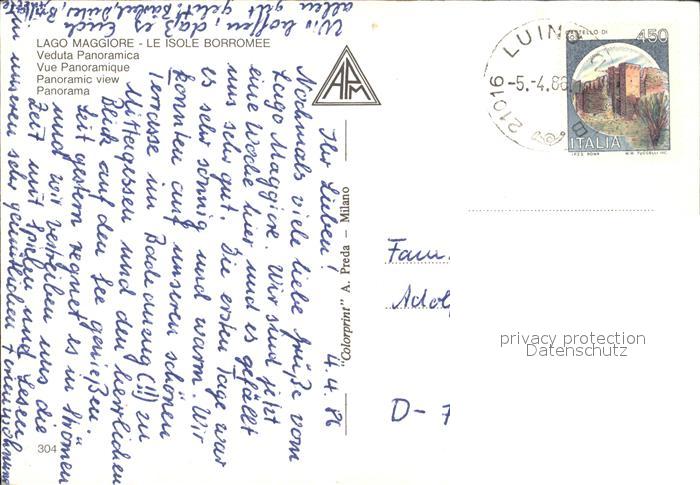 LAGO MAGGIORE - LE ISOLE BORROMEE
Veduta Panoramica
Vue Panoramique
Panoramic view
Panorama
APM
"Colorprint" A. Preda – Milano
304
21016 LUINO
-5.-4.86
CASTELLO DI
450
ITALIA
I.P.Z.S. ROMA
4.4.86
Ihr Lieben!
Nochmals viele liebe Grüße vom
Lago Maggiore. Wir sind jetzt
eine Woche hier und es gefällt
uns sehr gut. Die ersten Tage war
es sehr sonnig und warm. Wir
konnten auf unserer schönen
Terrasse im Badeanzug (!!) zu
Mittagessen und den herrlichen
Blick auf den See genießen.
Seit gestern regnet es in Strömen
und wir vertreiben uns die
Zeit mit Spielen und Lesen
in unserer sehr gemütlichen Ferienwohnung
Wir hoffen, daß es Euch
allen gut geht.
Fam.
Adol
D- 7
privacy protection
Datenschutz